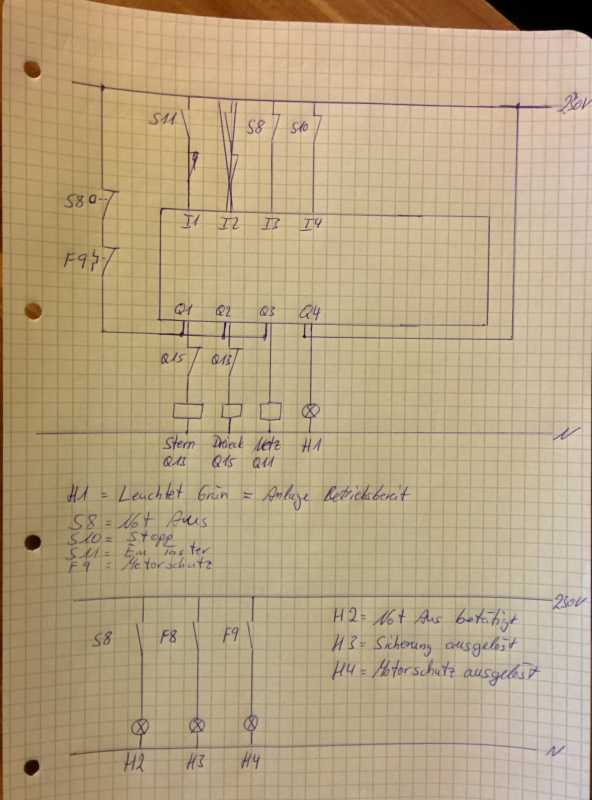 230V
S11 S8 S10
S8
F9
I1 I2 I3 I4
Q1 Q2 Q3 Q4
Q15 Q13
Stern Dreieck Netz H1
Q13 Q15 Q11
N
H1 = Leuchtet Grün = Anlage Betriebsbereit
S8 = Not Aus
S10 = Stopp
S11 = Ein Taster
F9 = Motorschutz
230V
S8 F8 F9
H2 = Not Aus betätigt
H3 = Sicherung ausgelöst
H4 = Motorschutz ausgelöst
N
H2 H3 H4